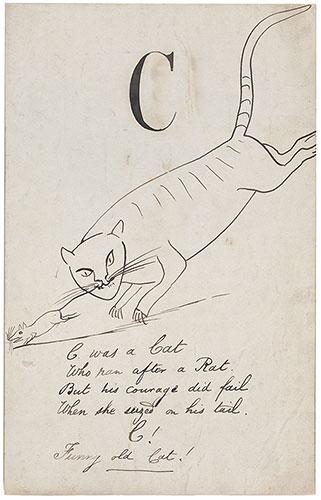 C
C was a Cat
Who ran after a Rat.
But his courage did fail
When she seized on his tail.
C!
Funny old Cat!